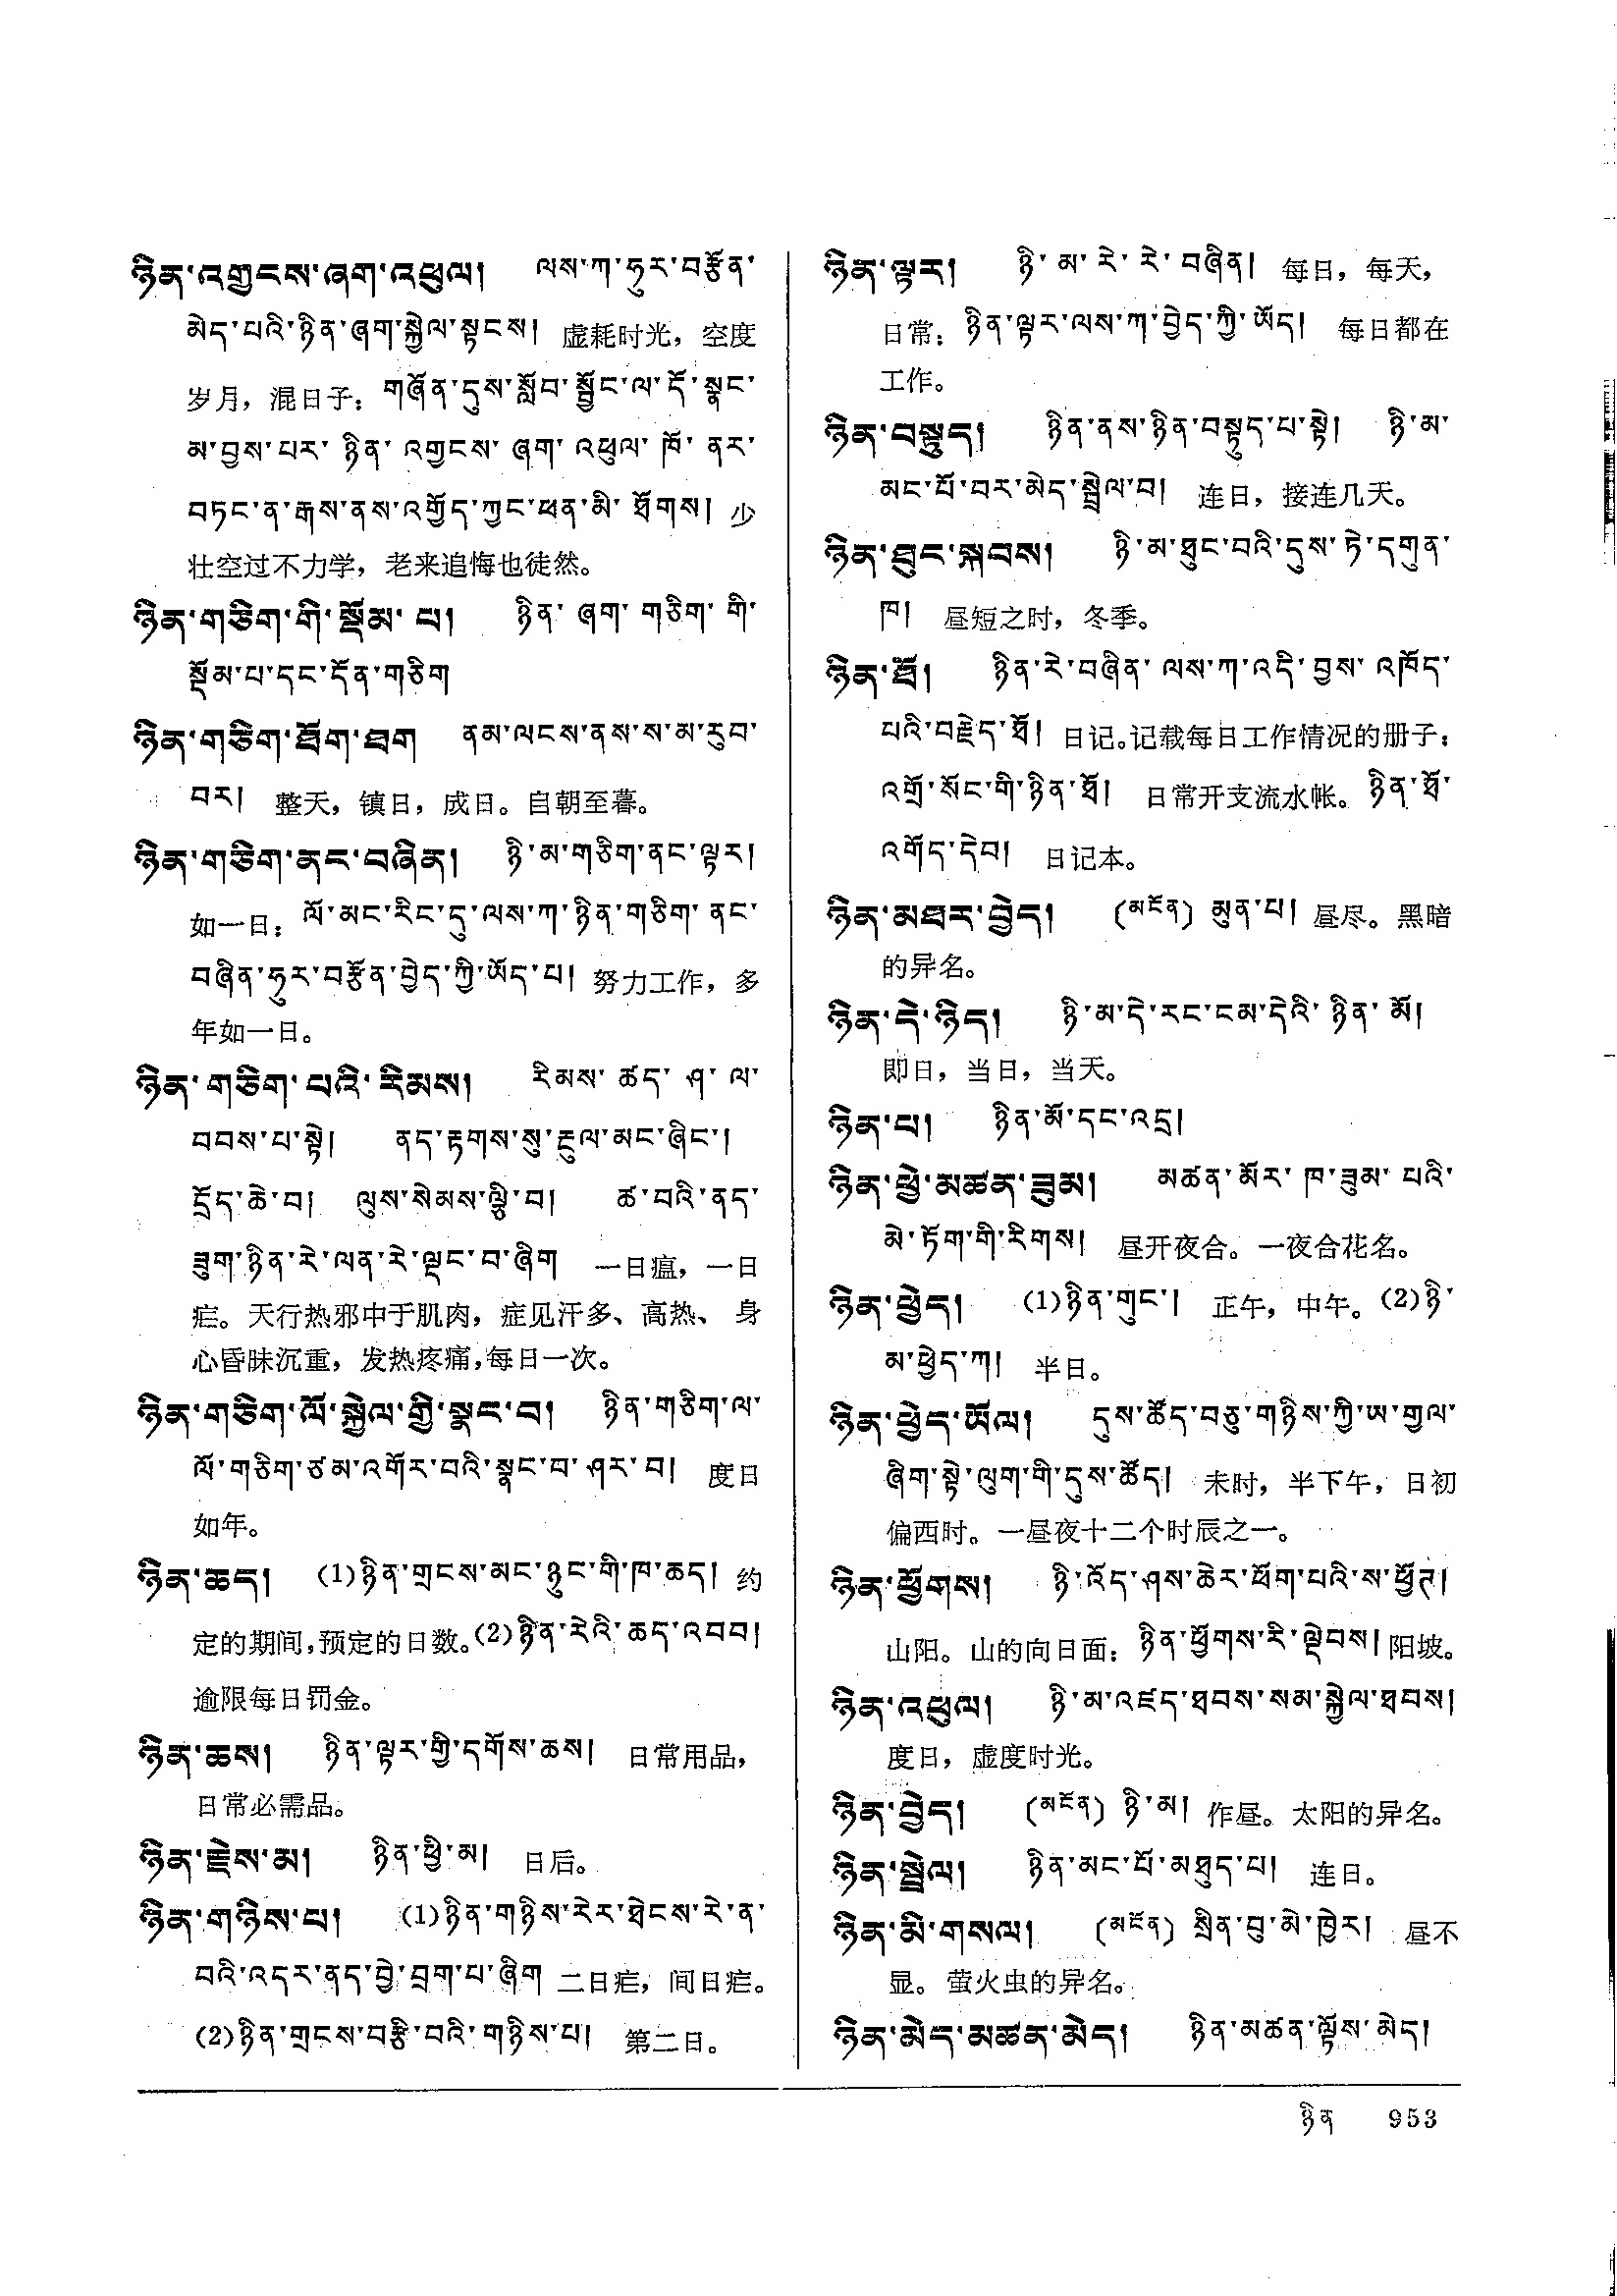 ཉིན་འགྱངས་ཞག་འཕུལ། ལས་ཀ་ཧུར་བརྩོན་
མེད་པའི་ཉིན་ཞག་སྐྱེལ་སྟངས། 虚耗时光，空度
岁月，混日子：གཞོན་དུས་སློབ་སྦྱོང་ལ་དོ་སྣང་
མ་བྱས་པར་ ཉིན་ འགྱངས་ ཞག་ འཕུལ་ ཁོ་ ནར་
བཏང་ན་རྒས་ནས་འགྱོད་ཀྱང་ཕན་མི་ ཐོགས། 少
壮空过不力学，老来追悔也徒然。
ཉིན་གཅིག་གི་སྡོམ་པ། ཉིན་ ཞག་ གཅིག་ གི་
སྡོམ་པ་དང་དོན་གཅིག
ཉིན་གཅིག་ཐོག་ཐག ནམ་ལངས་ནས་ས་མ་རུབ་
བར། 整天，镇日，成日。自朝至暮。
ཉིན་གཅིག་ནང་བཞིན། ཉི་མ་གཅིག་ནང་ལྟར།
如一日：ལོ་མང་རིང་དུ་ལས་ཀ་ཉིན་གཅིག་ ནང་
བཞིན་ཧུར་བརྩོན་བྱེད་ཀྱི་ཡོད་པ། 努力工作，多
年如一日。
ཉིན་གཅིག་པའི་རིམས། རིམས་ ཚད་ ཤ་ ལ་
བབས་པ་སྟེ། ནད་རྟགས་སུ་རྔུལ་མང་ཞིང་།
དྲོད་ཆེ་བ། ལུས་སེམས་ལྕི་བ། ཚ་བའི་ནད་
ཟུག་ཉིན་རེ་ལན་རེ་ལྡང་བ་ཞིག 一日瘟，一日
疟。天行热邪中于肌肉，症见汗多、高热、身
心昏昧沉重，发热疼痛，每日一次。
ཉིན་གཅིག་ལོ་སྐྱེལ་གྱི་སྣང་བ། ཉིན་གཅིག་ལ་
ལོ་གཅིག་ཙམ་འགོར་བའི་སྣང་བ་ཤར་བ། 度日
如年。
ཉིན་ཆད། (1)ཉིན་གྲངས་མང་ཉུང་གི་ཁ་ཆད། 约
定的期间，预定的日数。(2)ཉིན་རེའི་ཆད་འབབ།
逾限每日罚金。
ཉིན་ཆས། ཉིན་ལྟར་གྱི་དགོས་ཆས། 日常用品，
日常必需品。
ཉིན་རྗེས་མ། ཉིན་ཕྱི་མ། 日后。
ཉིན་གཉིས་པ། (1)ཉིན་གཉིས་རེར་ཐེངས་རེ་ན་
བའི་འདར་ནད་བྱེ་བྲག་པ་ཞིག 二日疟，间日疟。
(2)ཉིན་གྲངས་བརྩི་བའི་གཉིས་པ། 第二日。
ཉིན་ལྟར། ཉི་ མ་ རེ་ རེ་ བཞིན། 每日，每天，
日常：ཉིན་ལྟར་ལས་ཀ་བྱེད་ཀྱི་ཡོད། 每日都在
工作。
ཉིན་བསྟུད། ཉིན་ནས་ཉིན་བསྟུད་པ་སྟེ། ཉི་མ་
མང་པོ་བར་མེད་སྦྲེལ་བ། 连日，接连几天。
ཉིན་ཐུང་སྐབས། ཉི་མ་ཐུང་བའི་དུས་ཏེ་དགུན་
ཁ། 昼短之时，冬季。
ཉིན་ཐོ། ཉིན་རེ་བཞིན་ ལས་ཀ་འདི་བྱས་ འཁོད་
པའི་བརྗེད་ཐོ། 日记。记载每日工作情况的册子：
འགྲོ་སོང་གི་ཉིན་ཐོ། 日常开支流水帐。ཉིན་ཐོ་
འགོད་དེབ། 日记本。
ཉིན་མཐར་བྱེད། (མངོན) མུན་པ། 昼尽。黑暗
的异名。
ཉིན་དེ་ཉིད། ཉི་མ་དེ་རང་ངམ་དེའི་ ཉིན་ མོ།
即日，当日，当天。
ཉིན་པ། ཉིན་མོ་དང་འདྲ།
ཉིན་ཕྱེ་མཚན་ཟུམ། མཚན་ མོར་ ཁ་ཟུམ་ པའི་
མེ་ཏོག་གི་རིགས། 昼开夜合。一夜合花名。
ཉིན་ཕྱེད། (1)ཉིན་གུང་། 正午，中午。(2)ཉི་
མ་ཕྱེད་ཀ། 半日。
ཉིན་ཕྱེད་ཡོལ། དུས་ཚོད་བཅུ་གཉིས་ཀྱི་ཨ་གྱལ་
ཞིག་སྟེ་ལུག་གི་དུས་ཚོད། 未时，半下午，日初
偏西时。一昼夜十二个时辰之一。
ཉིན་ཕྱོགས། ཉི་འོད་ཤས་ཆེར་ཕོག་པའི་ས་ཕྱོཊ།
山阳。山的向日面：ཉིན་ཕྱོགས་རི་ལྡེབས། 阳坡。
ཉིན་འཕུལ། ཉི་མ་འཛད་ཐབས་སམ་སྐྱེལ་ཐབས།
度日，虚度时光。
ཉིན་བྱེད། (མངོན) ཉི་མ། 作昼。太阳的异名。
ཉིན་སྦྲེལ། ཉིན་མང་པོ་མཐུད་པ། 连日。
ཉིན་མི་གསལ། (མངོན) སྲིན་བུ་མེ་ཁྱེར། 昼不
显。萤火虫的异名。
ཉིན་མེད་མཚན་མེད། ཉིན་མཚན་ལྟོས་མེད།
ཉིན 953